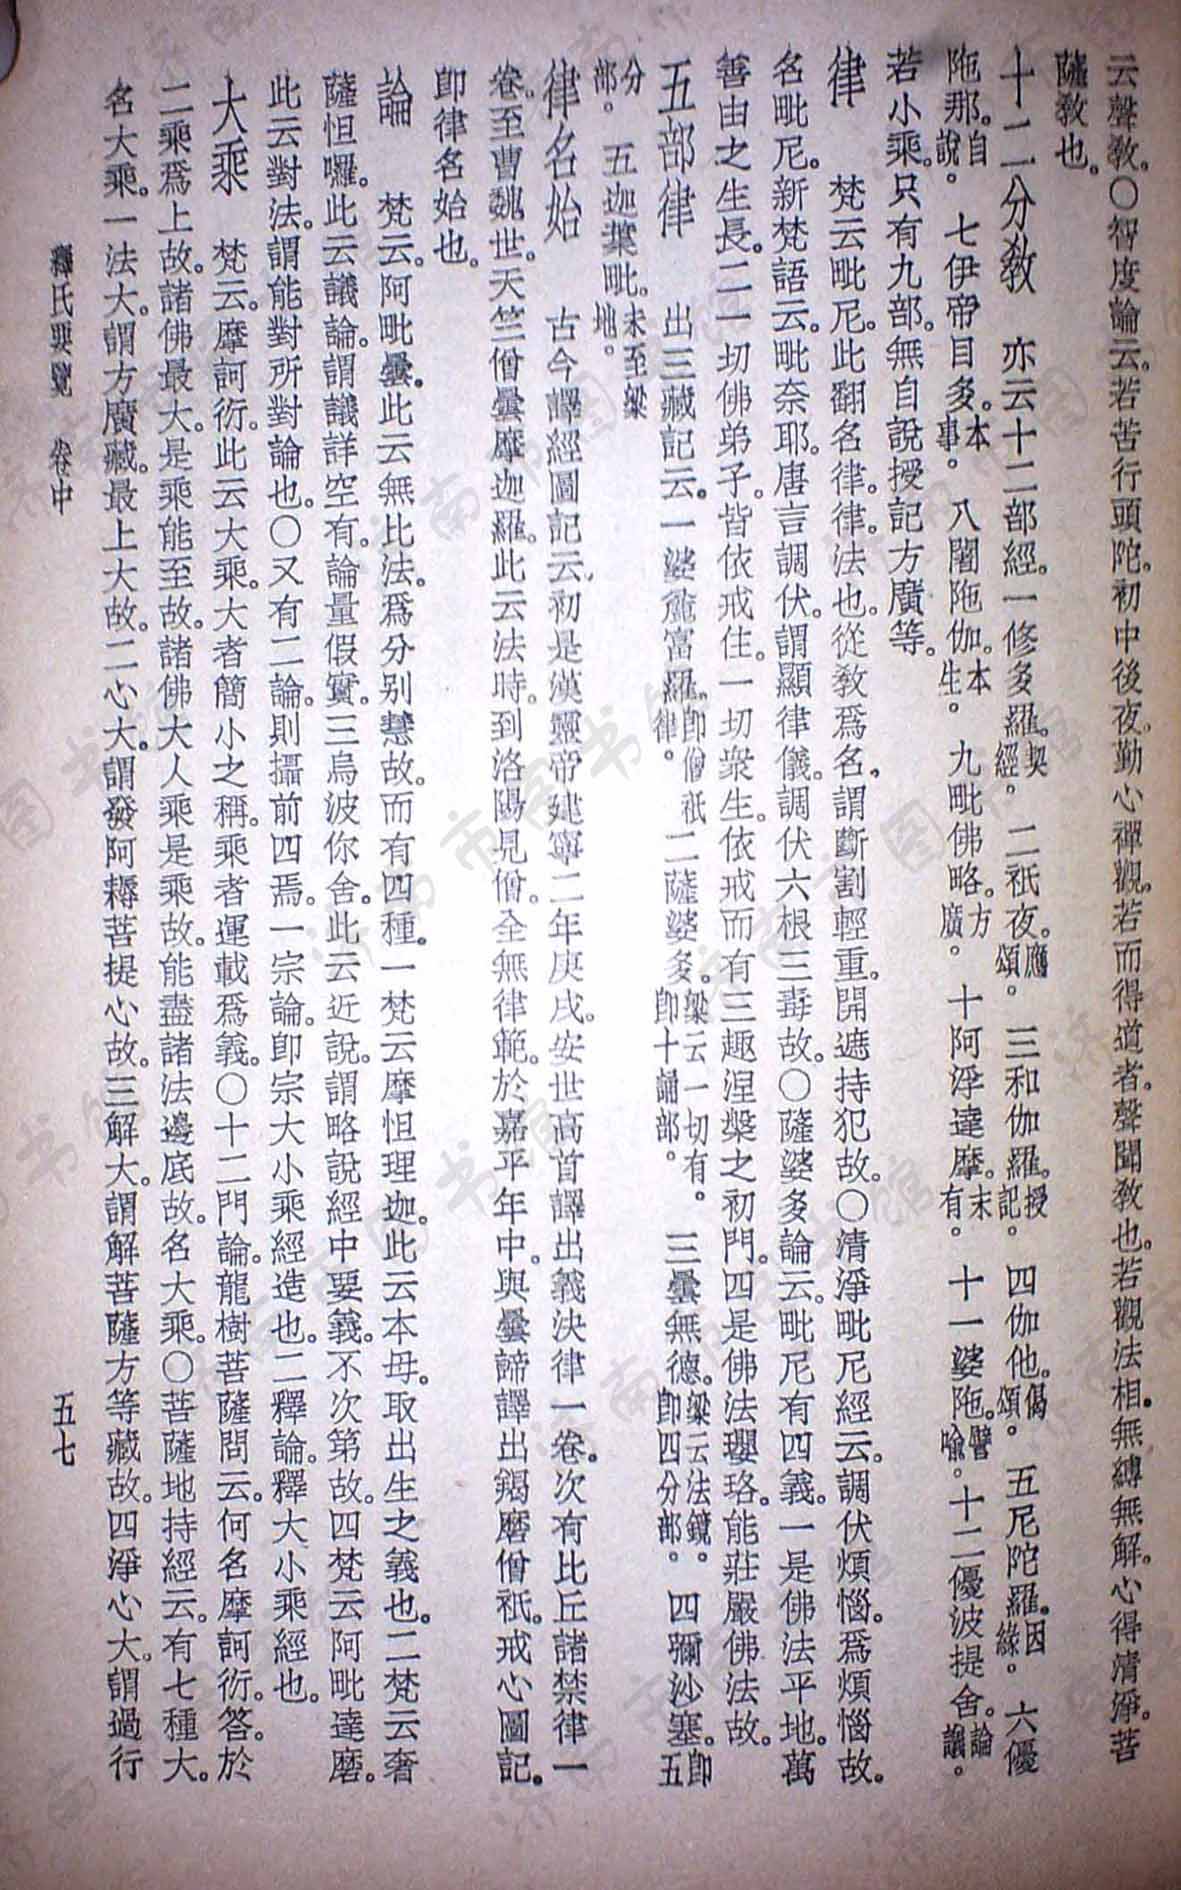 云聲敎。〇智度論云。若苦行頭陀。初中後夜。勤心禪觀。若而得道者。聲聞敎也。若觀法相。無縛無解。心得清淨。菩
薩敎也。
十二分敎　亦云十二部經。一修多羅。契經。二祇夜。應頌。三和伽羅。授記。四伽他。偈頌。五尼陀羅。因緣。六優
陁那。自說。七伊帝目多。本事。八闍陁伽。本生。九毗佛略。方廣。十阿浮達摩。未有。十一婆陁。譬喩。十二優波提舍。論議。
若小乘。只有九部。無自說授記方廣等。
律　梵云毗尼。此翻名律。律。法也。從敎爲名。謂斷割輕重。開遮持犯故。〇清淨毗尼經云。調伏煩惱。爲煩惱故。
名毗尼。新梵語云。毗奈耶。唐言調伏。謂顯律儀。調伏六根三毒故。〇薩婆多論云。毗尼有四義。一是佛法平地。萬
善由之生長。二一切佛弟子。皆依戒住。一切衆生。依戒而有三趣涅槃之初門。四是佛法瓔珞。能莊嚴佛法故。
五部律　出三藏記云。一婆麁富羅。卽僧祇律。二薩婆多。梁云一切有。卽十誦部。三曇無德。梁云法鏡。卽四分部。四彌沙塞。卽五
分部。五迦葉毗。未至梁地。
律名始　古今譯經圖記云。初是漢靈帝建寧二年庚戌。安世高首譯出義決律一卷。次有比丘諸禁律一
卷。至曹魏世。天竺僧曇摩迦羅。此云法時。到洛陽見僧。全無律範。於嘉平年中。與曇諦譯出羯磨僧祇。戒心圖記。
卽律名始也。
論　梵云。阿毗曇。此云無比法。爲分別慧故。而有四種。一梵云摩怛理迦。此云本母。取出生之義也。二梵云奢
薩怛囉。此云議論。謂議詳空有。論量假實。三烏波你舍。此云近說。謂略說經中要義。不次第故。四梵云阿毗達磨。
此云對法。謂能對所對論也。〇又有二論。則攝前四焉。一宗論。卽宗大小乘經造也。二釋論。釋大小乘經也。
大乘　梵云。摩訶衍。此云大乘。大者簡小之稱。乘者運載爲義。〇十二門論。龍樹菩薩問云。何名摩訶衍。答。於
二乘爲上故。諸佛最大。是乘能至故。諸佛大人乘是乘故。能盡諸法邊底故。名大乘。〇菩薩地持經云。有七種大。
名大乘。一法大。謂方廣藏。最上大故。二心大。謂發阿耨菩提心故。三解大。謂解菩薩方等藏故。四淨心大。謂過行
釋氏要覽　卷中　五七